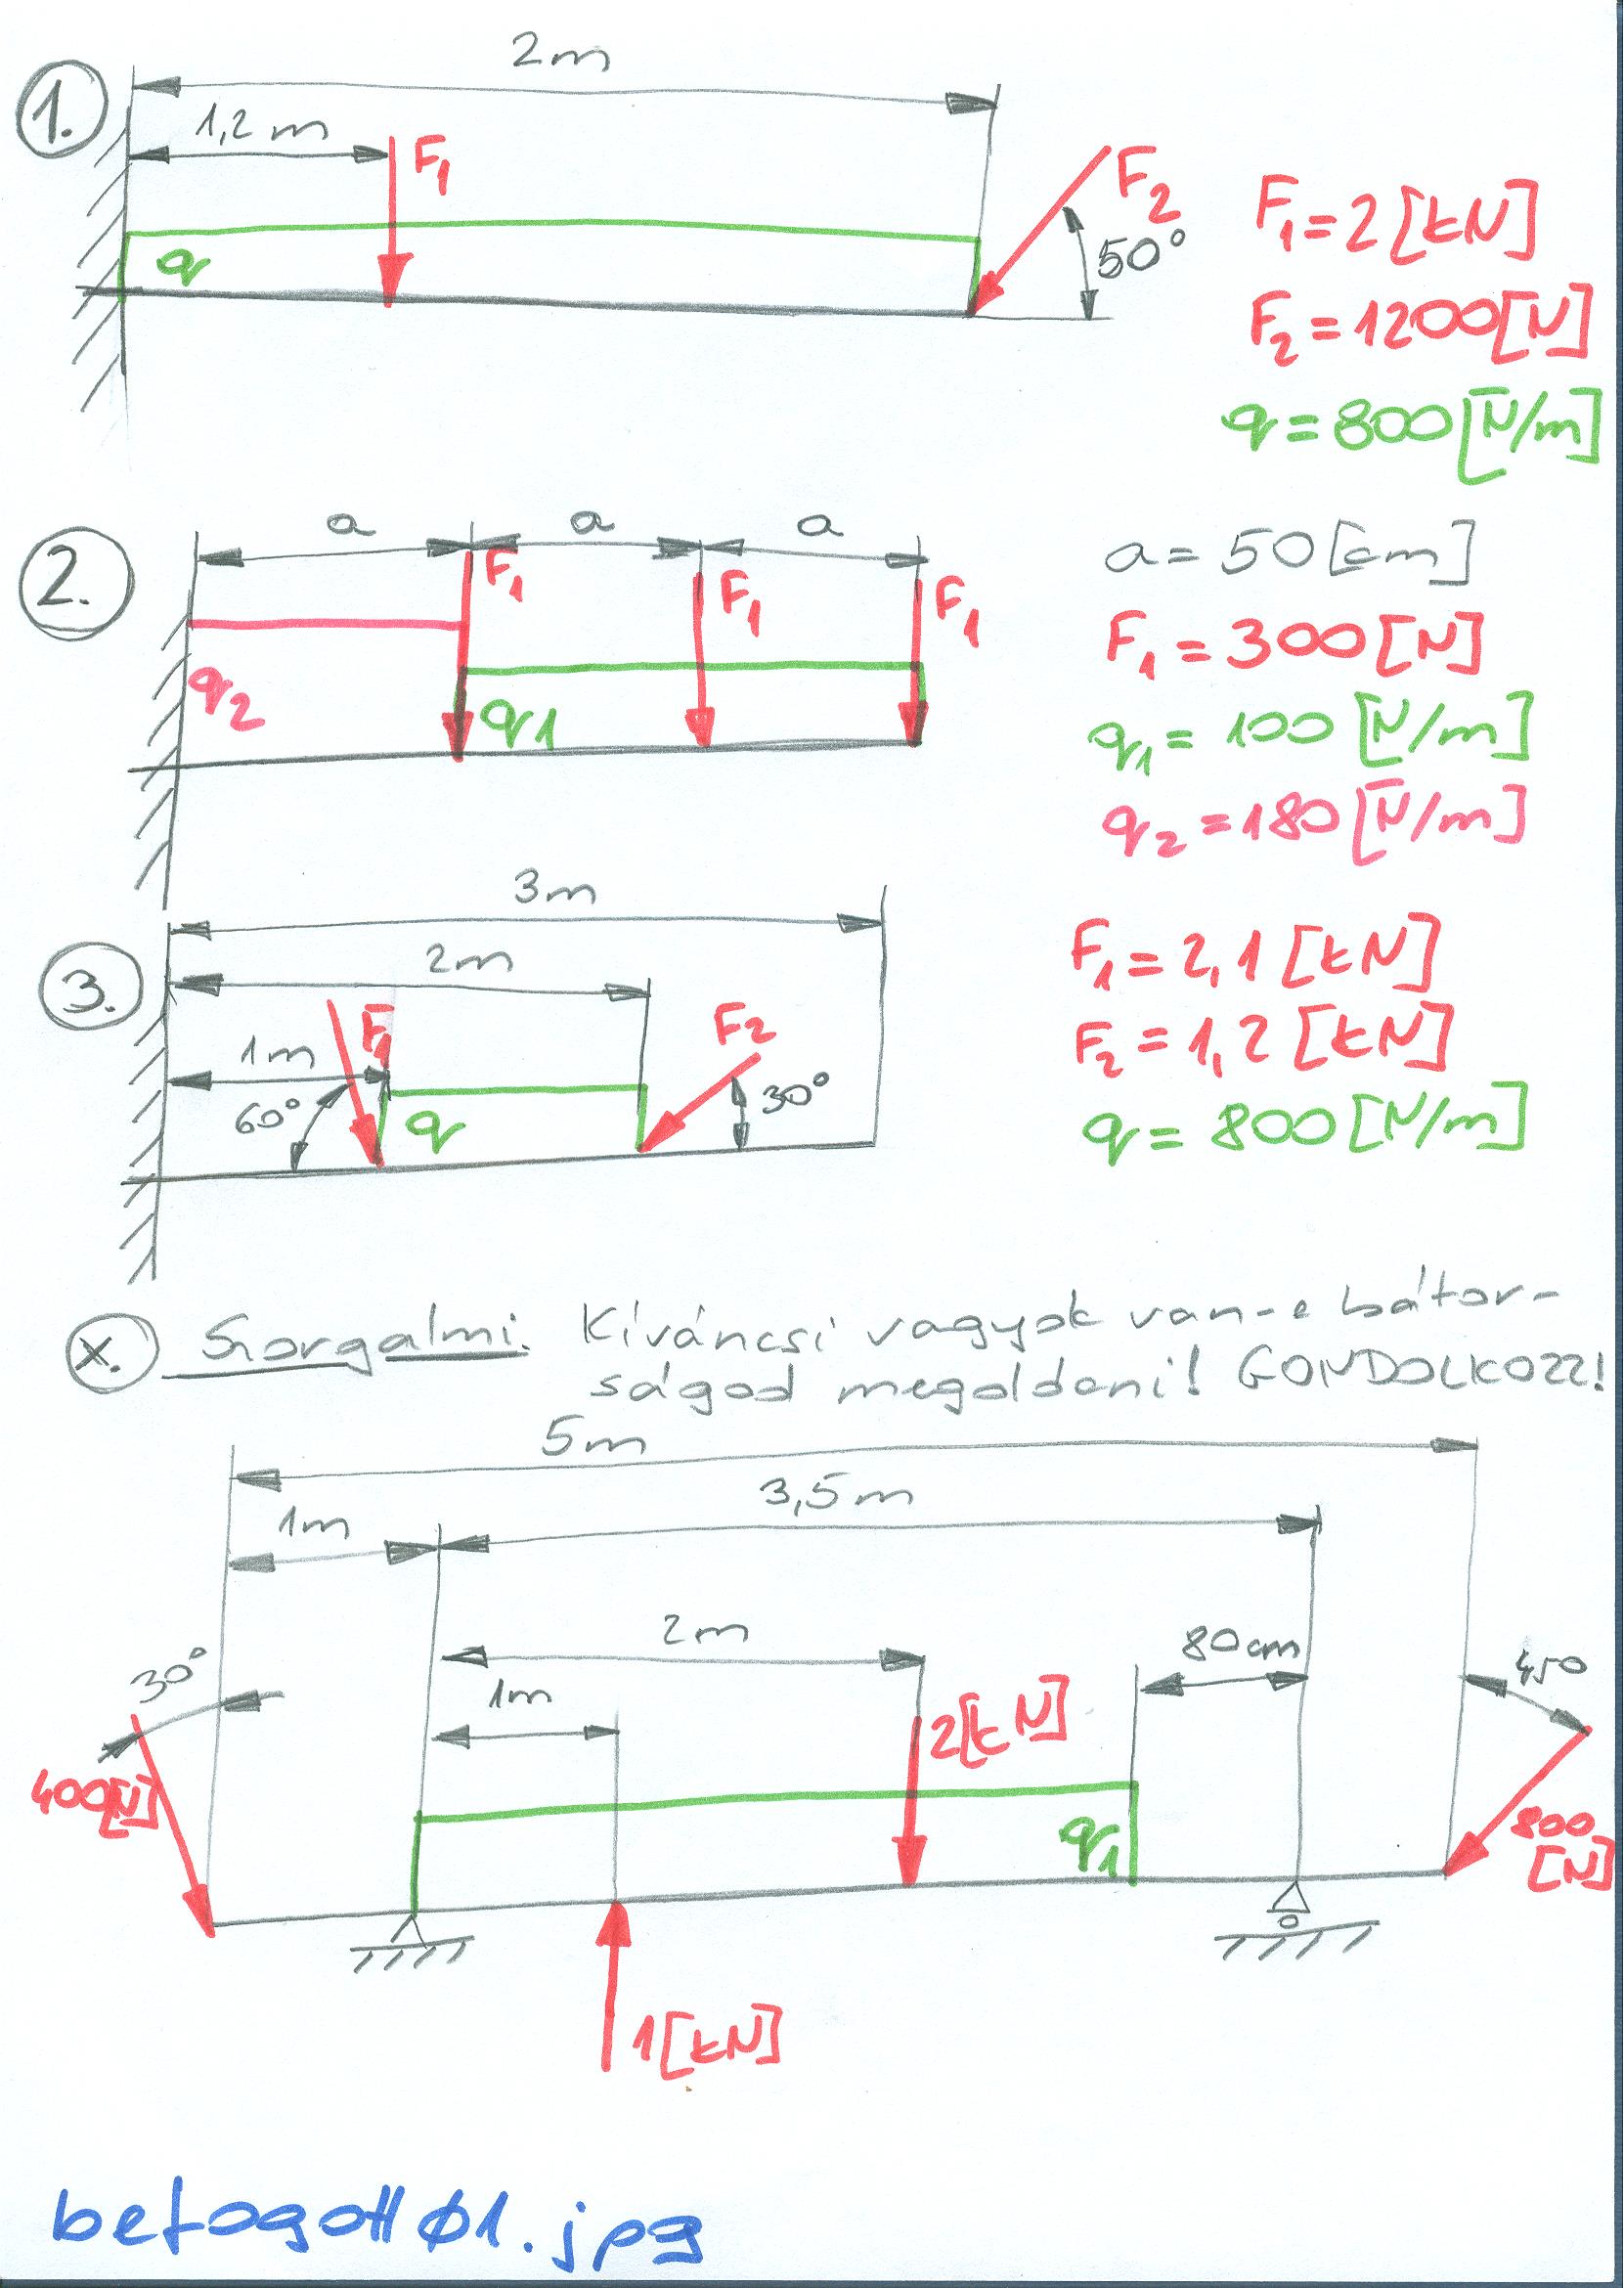 1.
2m
1,2 m
F1
F2
50°
q
F1 = 2 [kN]
F2 = 1200 [N]
q = 800 [N/m]
2.
a
a
a
F1
F1
F1
q2
q1
a = 50 [cm]
F1 = 300 [N]
q1 = 100 [N/m]
q2 = 180 [N/m]
3.
3m
2m
1m
F1
F2
60°
30°
q
F1 = 2,1 [kN]
F2 = 1,2 [kN]
q = 800 [N/m]
x. Szorgalmi: Kíváncsi vagyok van-e bátor-
ságod megoldani! GONDOLKOZZ!
5m
3,5m
1m
2m
80cm
30°
1m
45°
2[kN]
400[N]
q1
800
[N]
1[kN]
befogott01.jpg